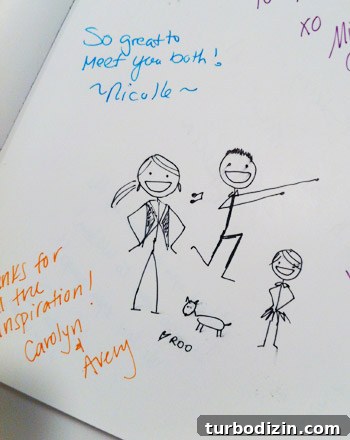 So great to
Meet you both!
~Nicolle~
XO
Thanks for
all the
inspiration!
Carolyn
&
Avery
ROO
turbodizin.com